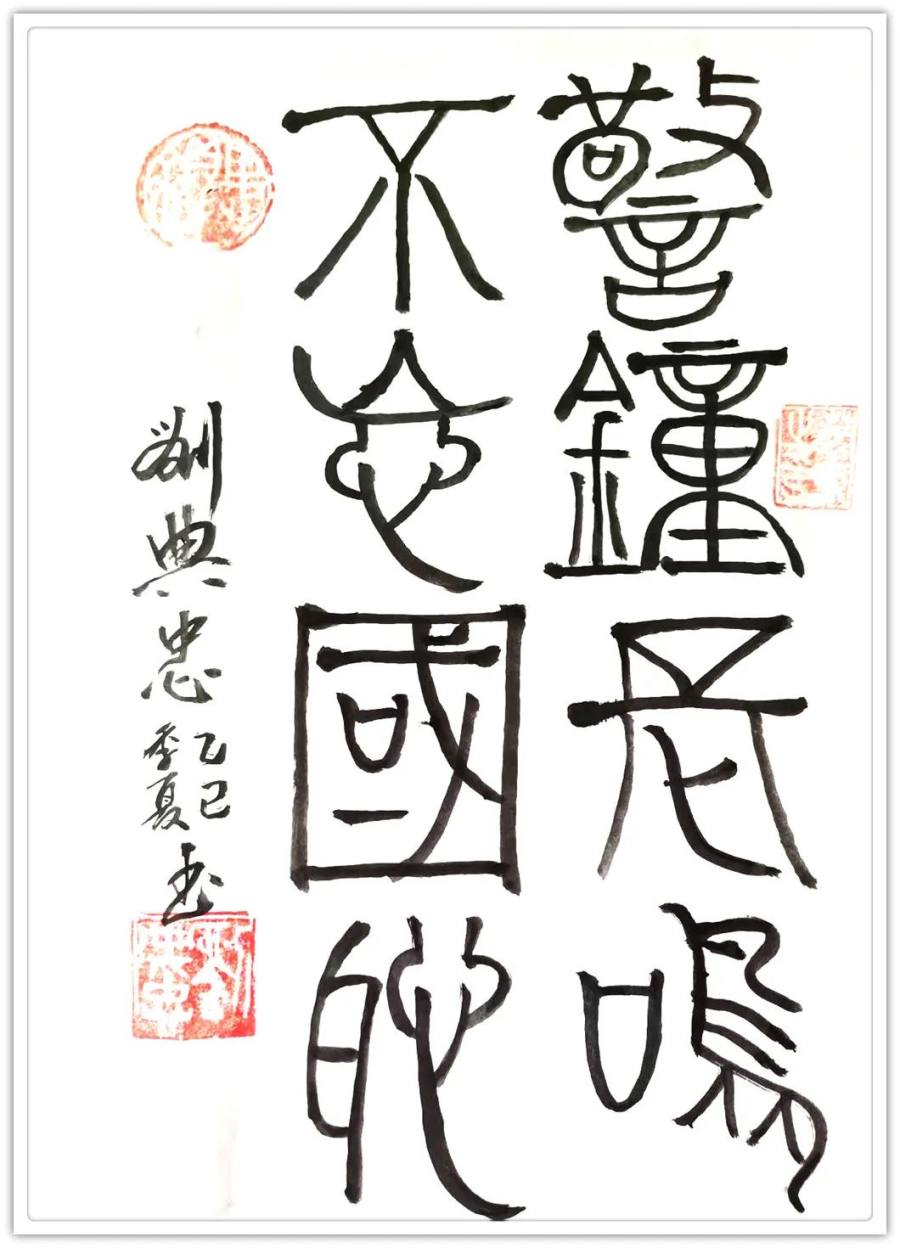 警鐘長鳴
不忘國恥
劉典忠
乙巳
季夏
書